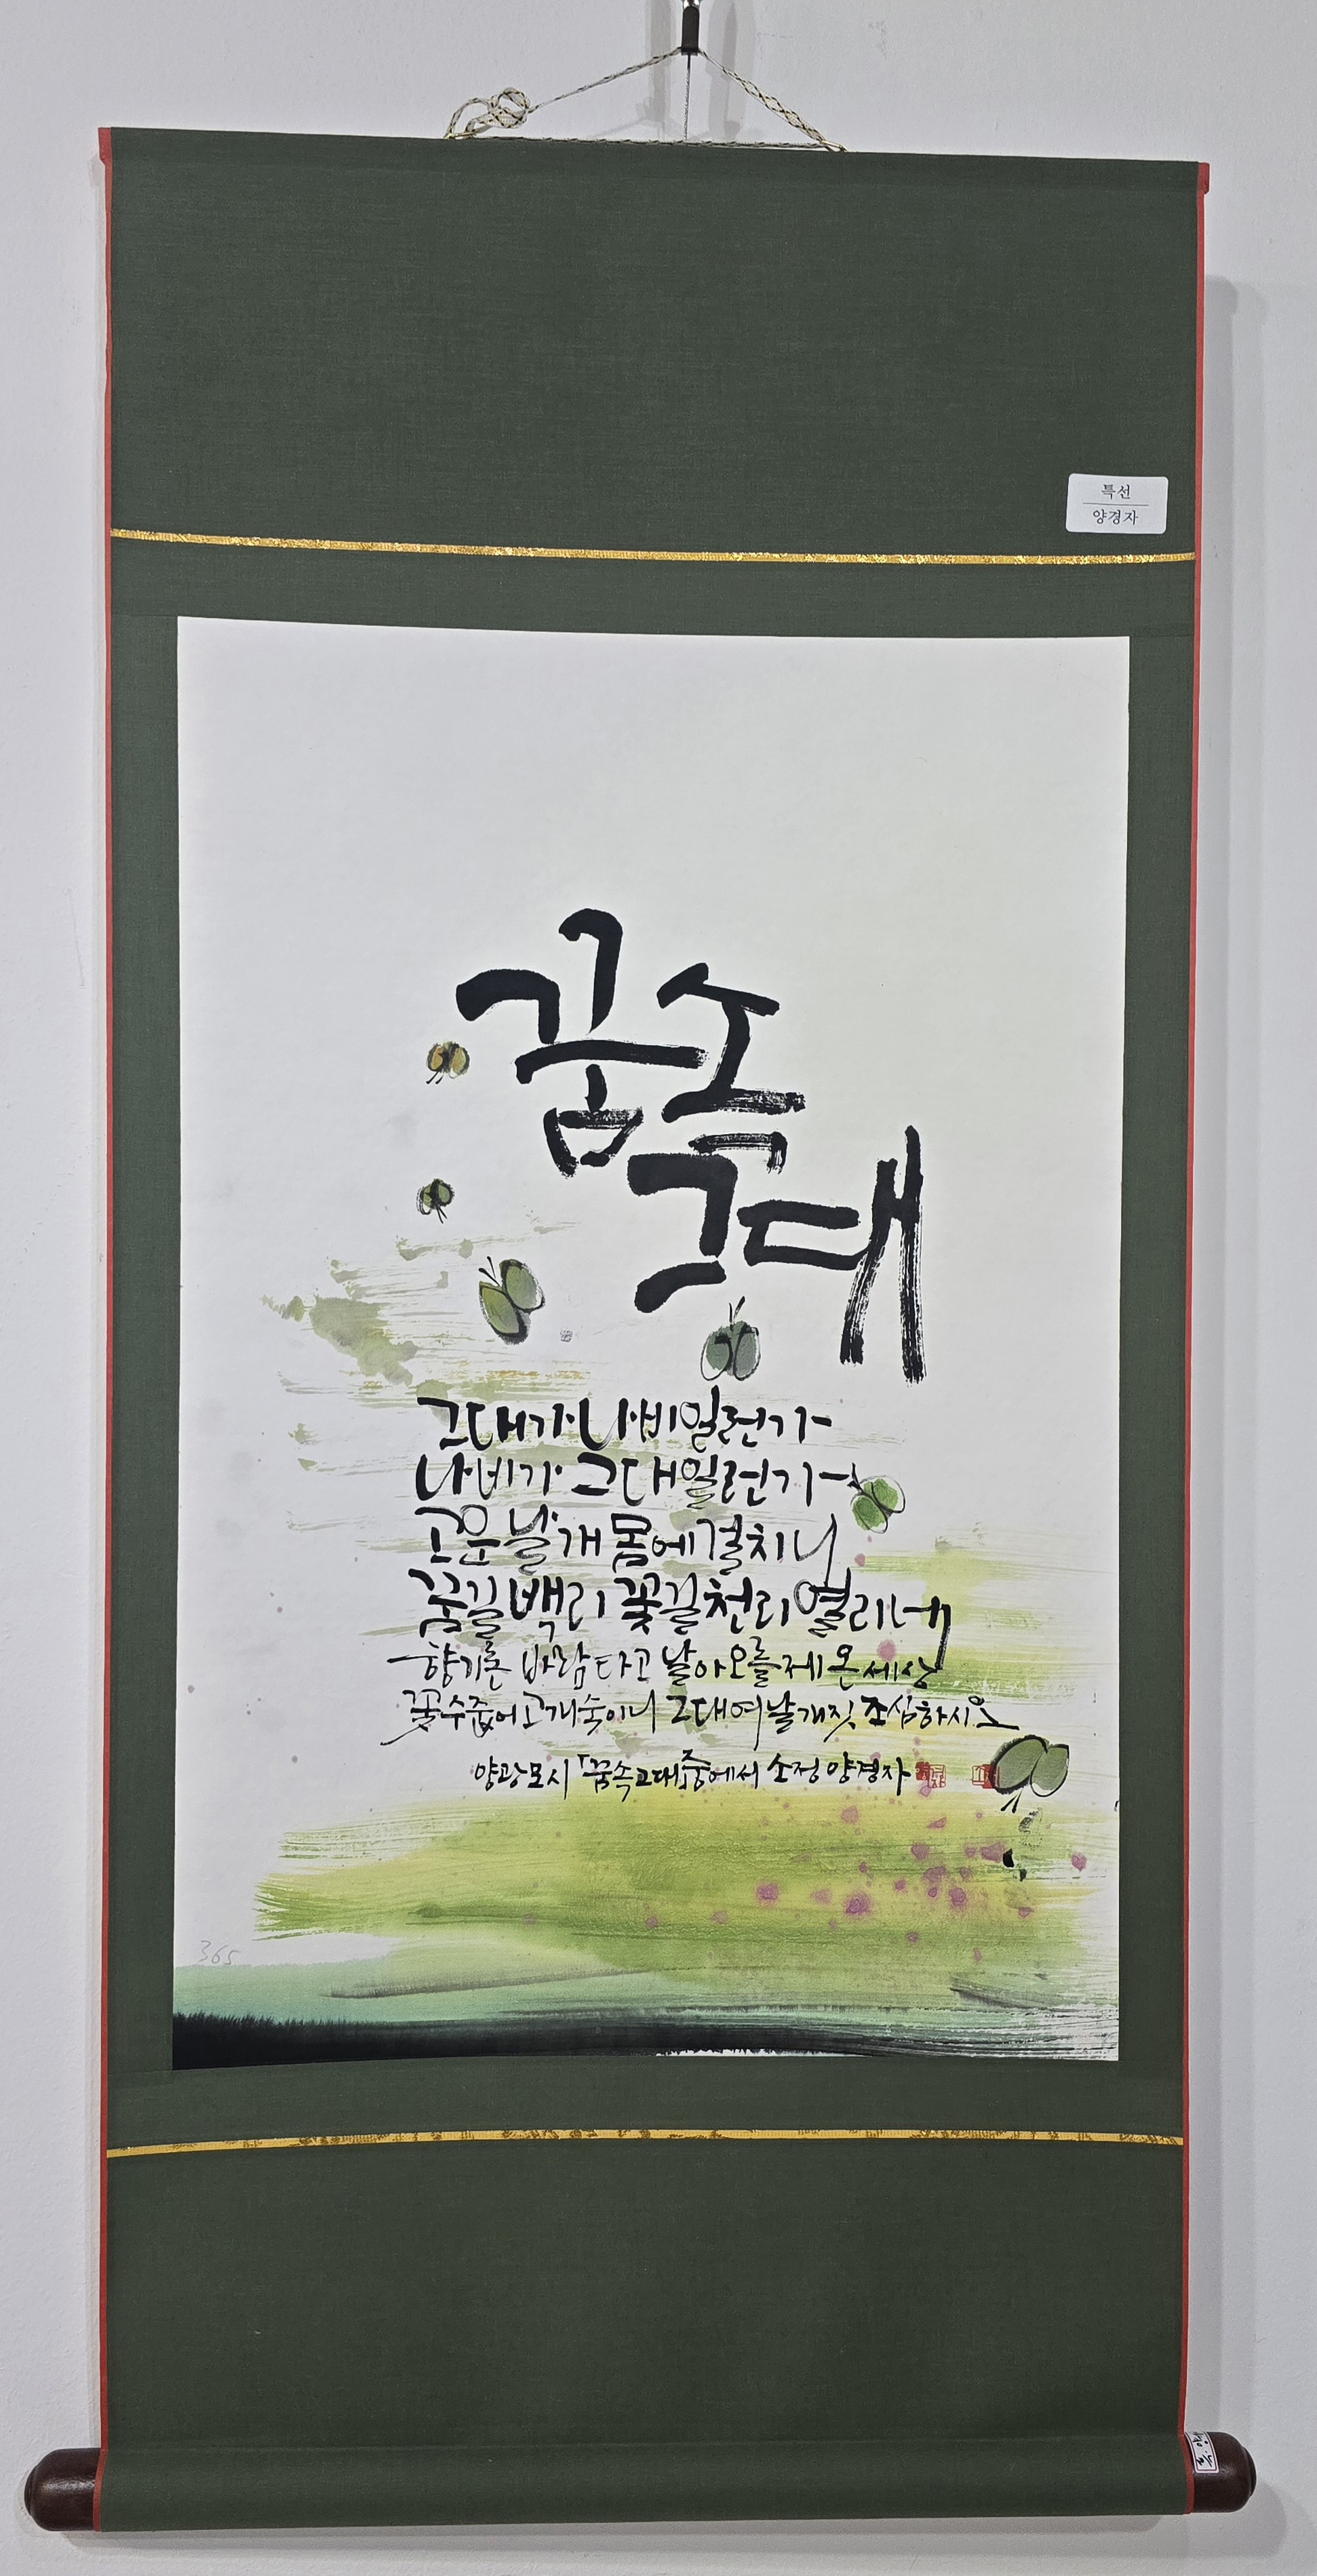 특선
양경자
꿈속
그대
그대가 나비일런가
나비가 그대일런가
고운 날개 몸에 걸치니
꿈길 백리 꽃길 천리 열리네
향기론 바람 타고 날아오를제 온 세상
꽃 수줍어 고개 숙이니 그대여 날개짓 조심하시오
양광모 시 「꿈속그대」중에서 소정 양경자
365